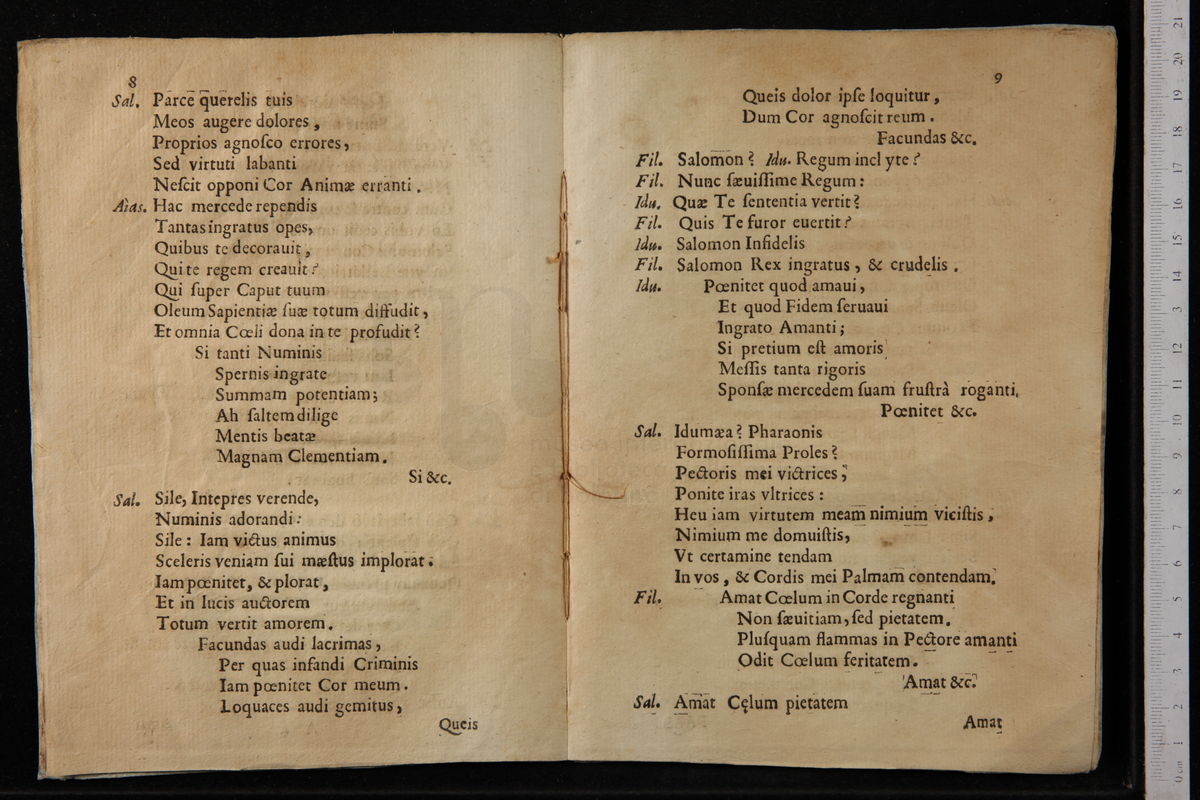 8
Sal. Parce querelis tuis
Meos augere dolores,
Proprios agnoſco errores,
Sed virtuti labanti
Neſcit opponi Cor Animæ erranti.
Aias. Hac mercede rependis
Tantas ingratus opes,
Quibus te decorauit,
Qui te regem creauit?
Qui ſuper Caput tuum
Oleum Sapientiæ ſuæ totum diffudit,
Et omnia Cœli dona in te profudit?
Si tanti Numinis
Spernis ingrate
Summam potentiam;
Ah ſaltem dilige
Mentis beatæ
Magnam Clementiam.
Si &c.
Sal. Sile, Intepres verende,
Numinis adorandi:
Sile: Iam victus animus
Sceleris veniam ſui mæſtus implorat.
Iam pœnitet, & plorat,
Et in lucis auctorem
Totum vertit amorem.
Facundas audi lacrimas,
Per quas infandi Criminis
Iam pœnitet Cor meum.
Loquaces audi gemitus,
Queis
9
Queis dolor ipſe loquitur,
Dum Cor agnoſcit reum.
Facundas &c.
Fil. Salomon? Idu. Regum incl yte?
Fil. Nunc ſæuiſſime Regum:
Idu. Quæ Te ſententia vertit?
Fil. Quis Te furor euertit?
Idu. Salomon Infidelis
Fil. Salomon Rex ingratus, & crudelis.
Idu. Pœnitet quod amaui,
Et quod Fidem ſeruaui
Ingrato Amanti;
Si pretium eſt amoris
Meſſis tanta rigoris
Sponſæ mercedem ſuam fruſtrà roganti.
Pœnitet &c.
Sal. Idumæa? Pharaonis
Formoſiſſima Proles?
Pectoris mei victrices;
Ponite iras vltrices:
Heu iam virtutem meam nimium viciſtis,
Nimium me domuiſtis,
Vt certamine tendam
In vos, & Cordis mei Palmam contendam.
Fil. Amat Cœlum in Corde regnanti
Non ſæuitiam, ſed pietatem.
Pluſquam flammas in Pectore amanti
Odit Cœlum feritatem.
Amat &c.
Sal. Amat Cęlum pietatem
Amat